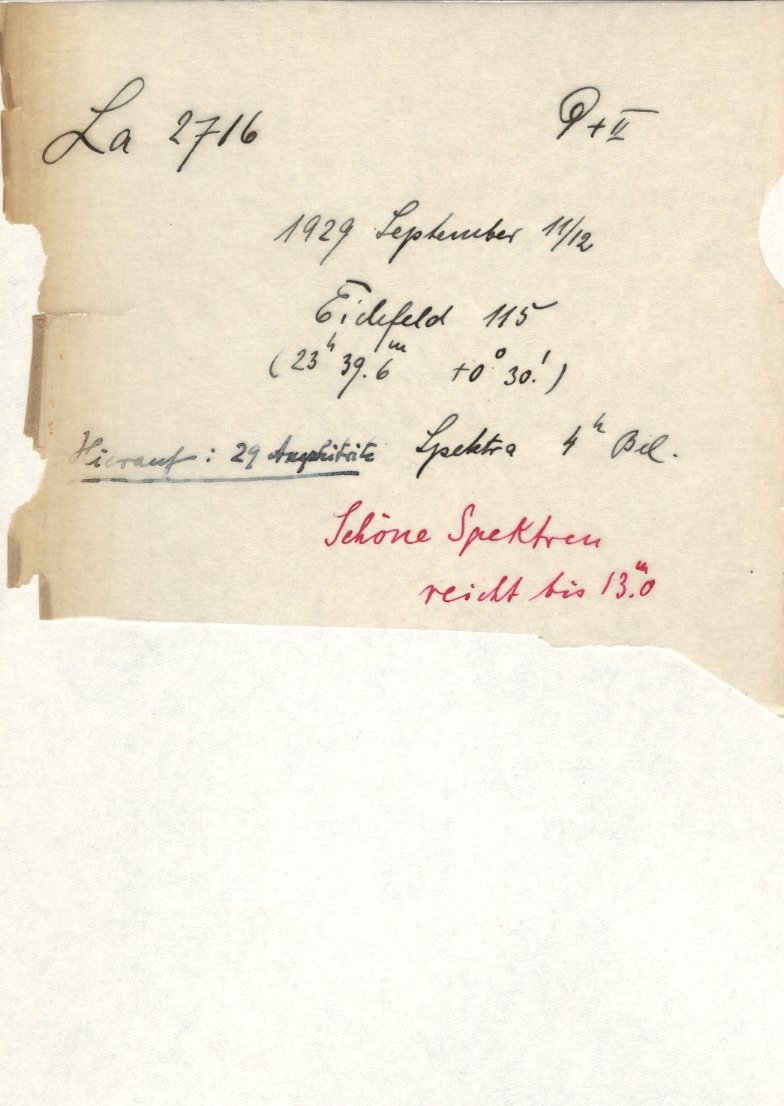 La 2716 P+II
1929 September 11/12
Eichfeld 115
(23ʰ 39.6ᵐ +0° 30.')
Hierauf: 29 Amphitrite Spektra 4ʰ Bel.
Schöne Spektren
reicht bis 13.ᵐ0